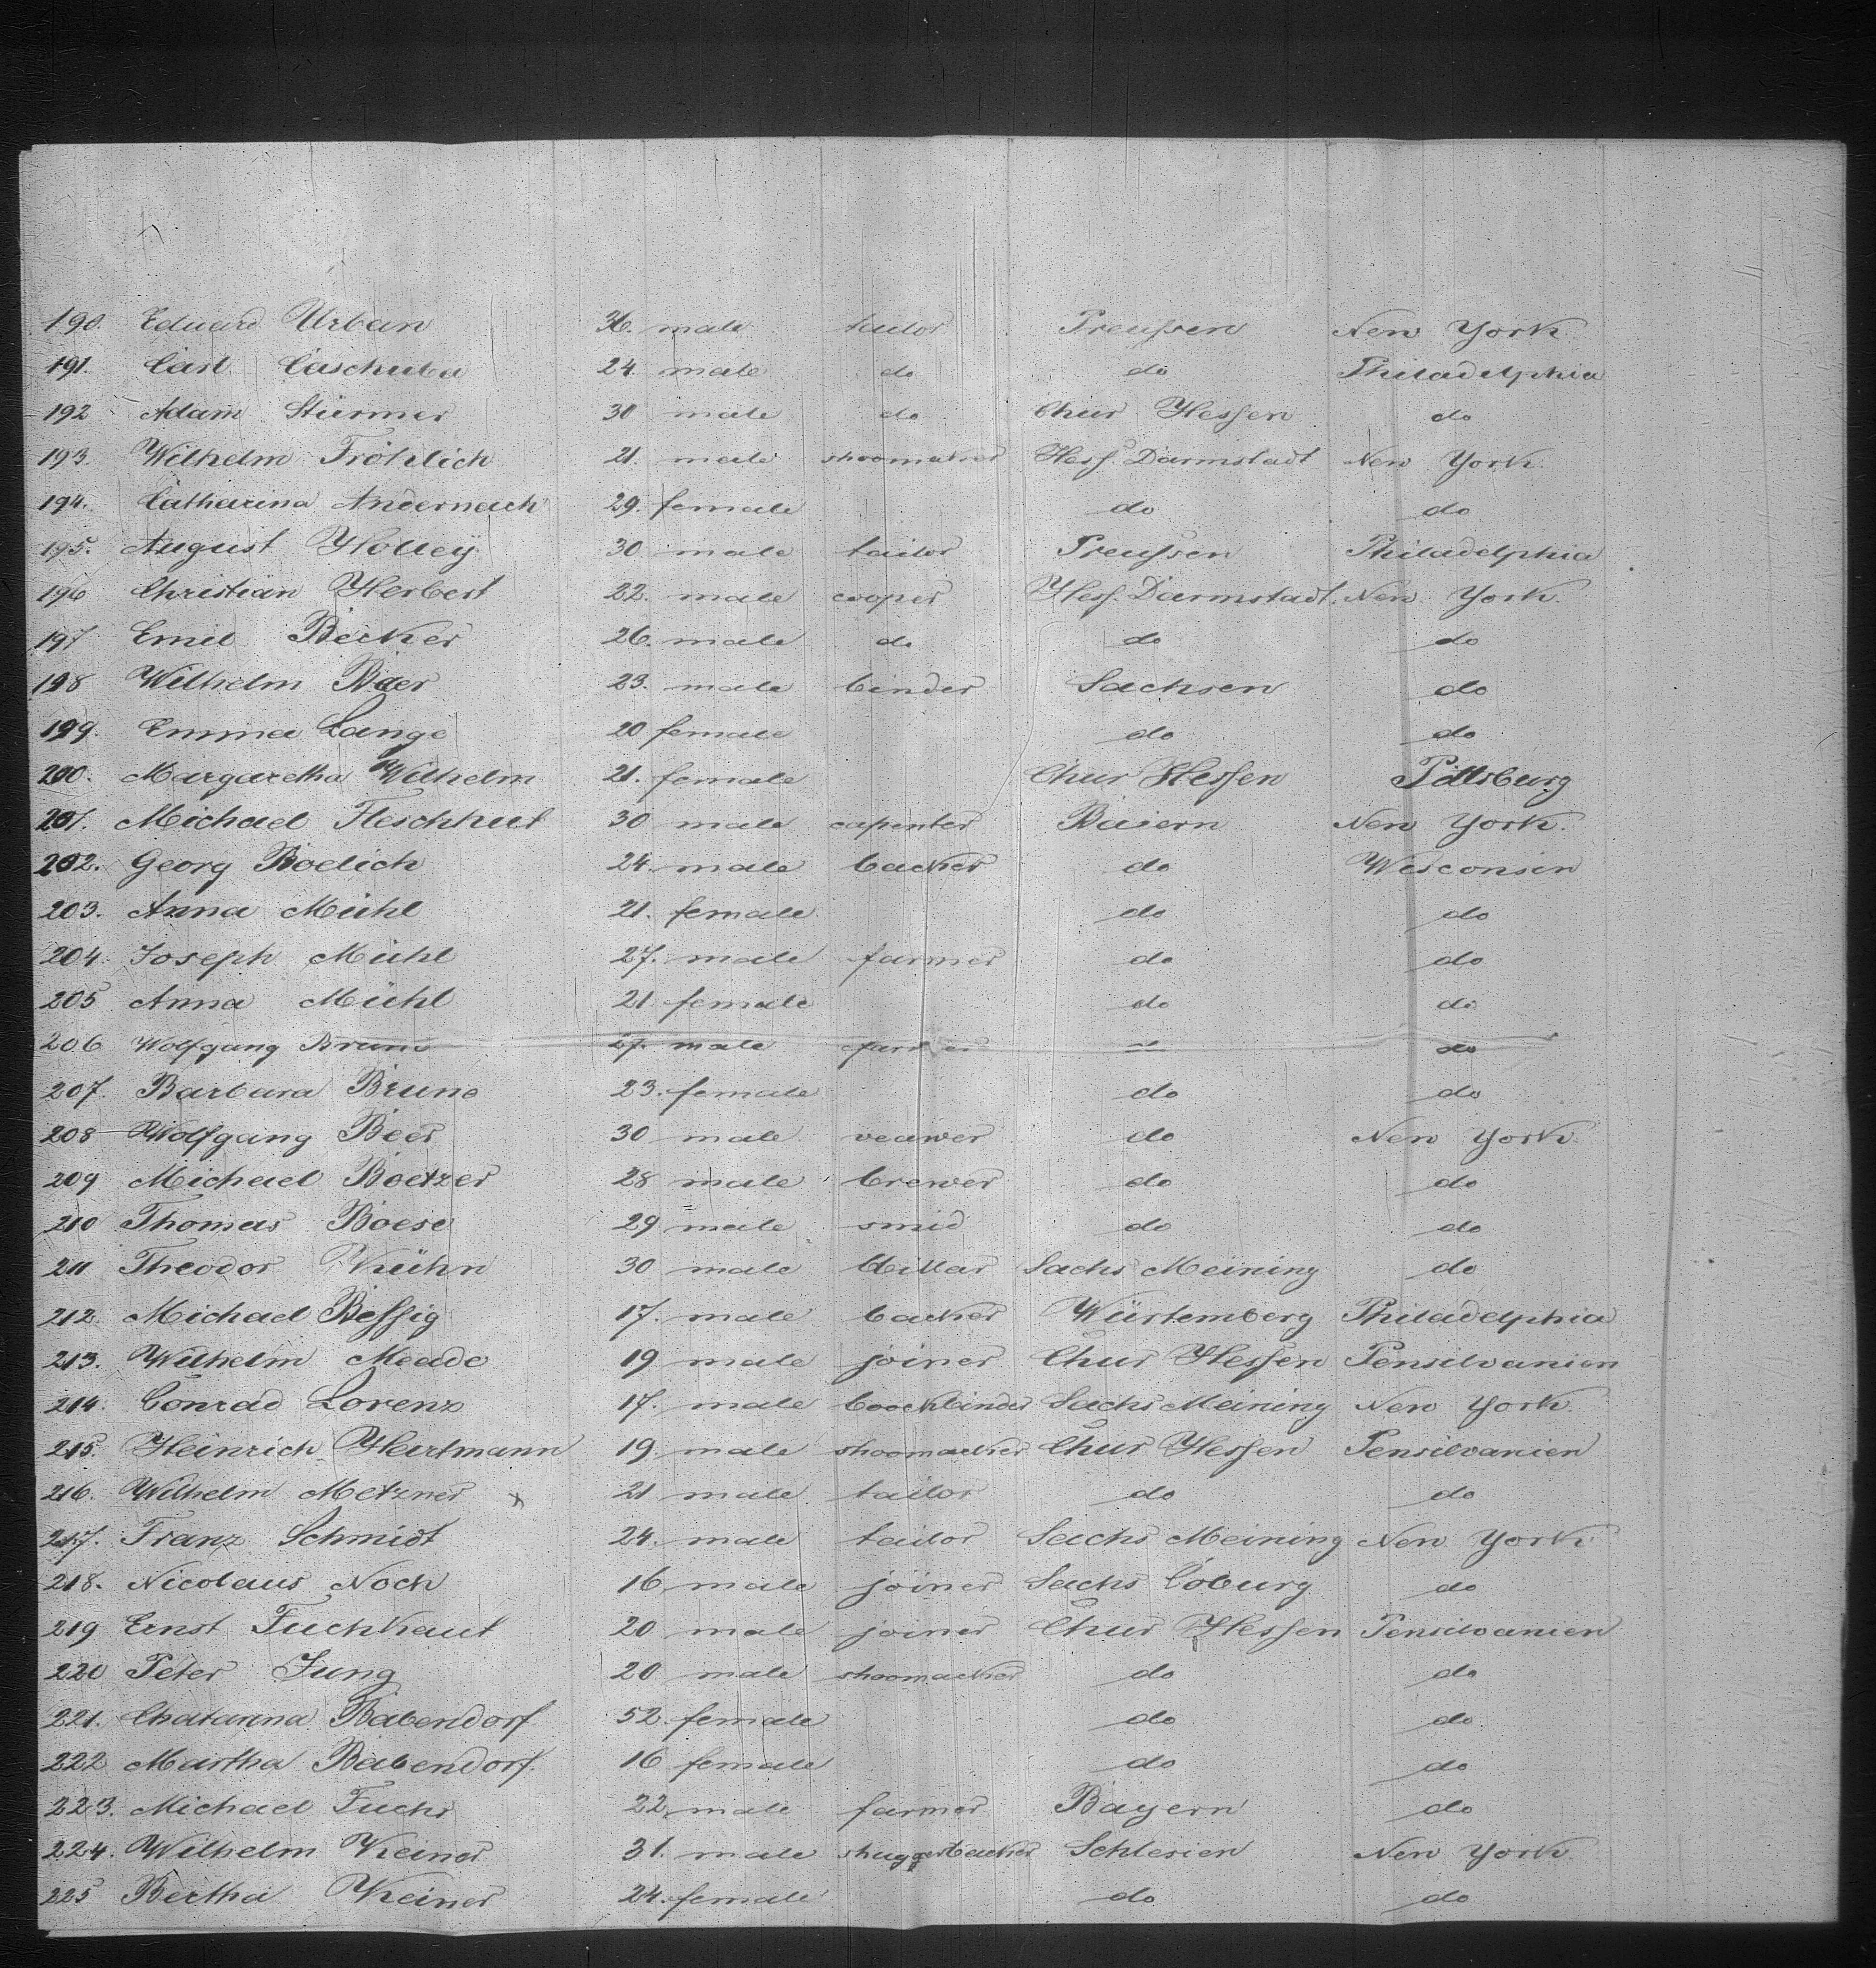 190. Eduard Urban 36. male tailor Preussen New York.
191. Carl Caschuba 24. male do do Philadelphia
192 Adam Stürmer 30 male do Chur Hessen do
193. Wilhelm Fröhlich 21. male shoomaker Hess. Darmstadt New York.
194. Catharina Andernach 29. female do do
195. August Holley 30 male tailor Preussen Philadelphia
196 Christian Herbert 22. male cooper Hess. Darmstadt. New York.
197 Emil Becker 26. male do do do
198 Wilhelm Baer 23. male binder Sachsen do
199. Emma Lange 20 female do do
200. Margaretha Wilhelm 21. female Chur Hessen Pittsburg
201. Michael Fleschhut 30 male capenter Baiern New York.
202. Georg Boelich 24. male backer do Wisconsin
203. Anna Mühl 21. female do do
204. Joseph Mühl 27. male farmer do do
205 Anna Mühl 21 female do do
206 Wolfgang Bruno 27. male farmer do do
207. Barbara Bruno 23. female do do
208 Wolfgang Beer 30 male veawer do New York.
209 Michael Boetzer 28 male brewer do do
210 Thomas Boese 29 male smid do do
211 Theodor Kühn 30 male Sachs Meining do
212. Michael Bessig 17. male backer Würtemberg Philadelphia
213. Wilhelm Meade 19 male joiner Chur Hessen Pensilvanien
214. Conrad Lorenz 17. male boockbinder Sachs Meining New York.
215. Heinrich Hartmann 19. male shoomacker Chur Hessen Pensilvanien
216. Wilhelm Metzner x 21 male tailor do do
217. Franz Schmidt 24. male tailor Sachs Meining New York.
218. Nicolaus Noch 16 male joiner Sachs Coburg do
219 Ernst Fuchkaut 20 male joiner Chur Hessen Pensilvanien
220 Peter Jung 20 male shoomacker do do
221. Chatarina Babendorf 52. female do do
222 Martha Babendorf. 16 female do do
223. Michael Fuchs 22 male farmer Bayern do
224. Wilhelm Keiner 31. male shuggerbacker Schlesien New York.
225 Bertha Keiner 24. female do do